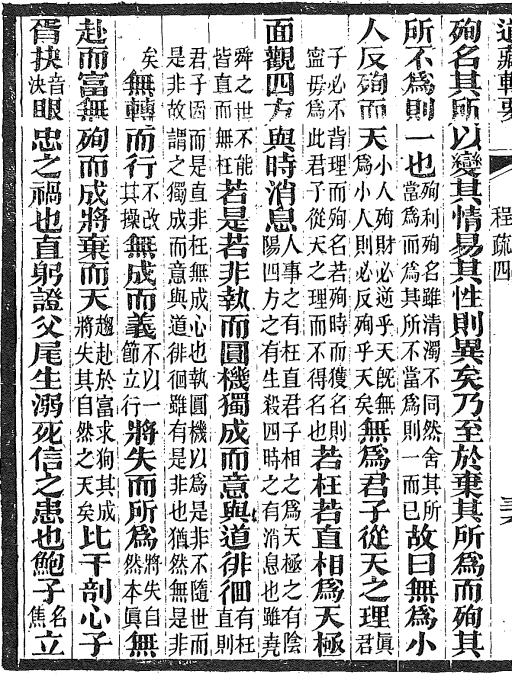 道藏輯要 程疏四
殉名其所以變其情易其性則異矣乃至於棄其所爲而殉其
所不爲則一也殉利殉名雖清濁不同然舍其所當爲而爲其所不當爲則一而已故曰無爲小
人反殉而天小人殉財必逆乎天旣無爲小人則必反殉乎天矣無爲君子從天之理眞君
子必不背理而殉名若殉時而獲名則寧毋爲此君子從天之理而不得名也若枉若直相爲天極
面觀四方與時消息人事之有枉直君子相之爲天極之有陰陽四方之有生殺四時之有消息也雖堯
舜之世不能皆直而無枉若是若非執而圓機獨成而意與道徘徊有枉直則
君子因而是直非枉無成心也執圓機以爲是非不隨世而是非故謂之獨成而意與道徘徊雖有是非也猶然無是非
矣無轉而行不改其操無成而義不以一節立行將失而所爲將失自然本眞無
赴而富無殉而成將棄而天趨赴於富求狥其成將失其自然之天矣比干剖心子
胥抉音決眼忠之禍也直躬證父尾生溺死信之患也鮑子名焦立